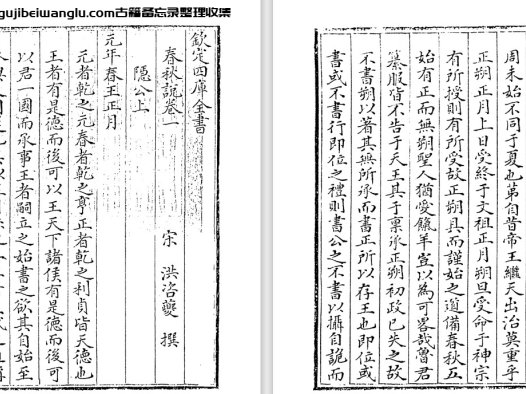 gujibeiwanglu.com古籍备忘录整理收集
欽定四庫全書
春秋說卷一 宋 洪咨夔 撰
隱公上
元年春王正月
元者乾之元春者乾之亨正者乾之利貞皆天德也
王者有是德而後可以王天下諸侯有是德而後可
以君一國而承事王者嗣立之始書之欲其自始至
周未始不同于夏也第自昔帝王繼天出治莫重乎
正朔正月上日受終于文祖正月朔旦受命于神宗
有所授則有所受故正朔具而謹始之道備春秋五
始有正而無朔聖人猶愛餼羊豈以為可吝哉魯君
纂服皆不告于天王其于稟承正朔初政已失之故
不書朔以著其無所承而書正所以存王也即位或
書或不書行即位之禮則書公之不書以攝自詭而